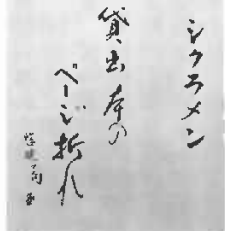 シクラメン
貸出本の
ページ折れ